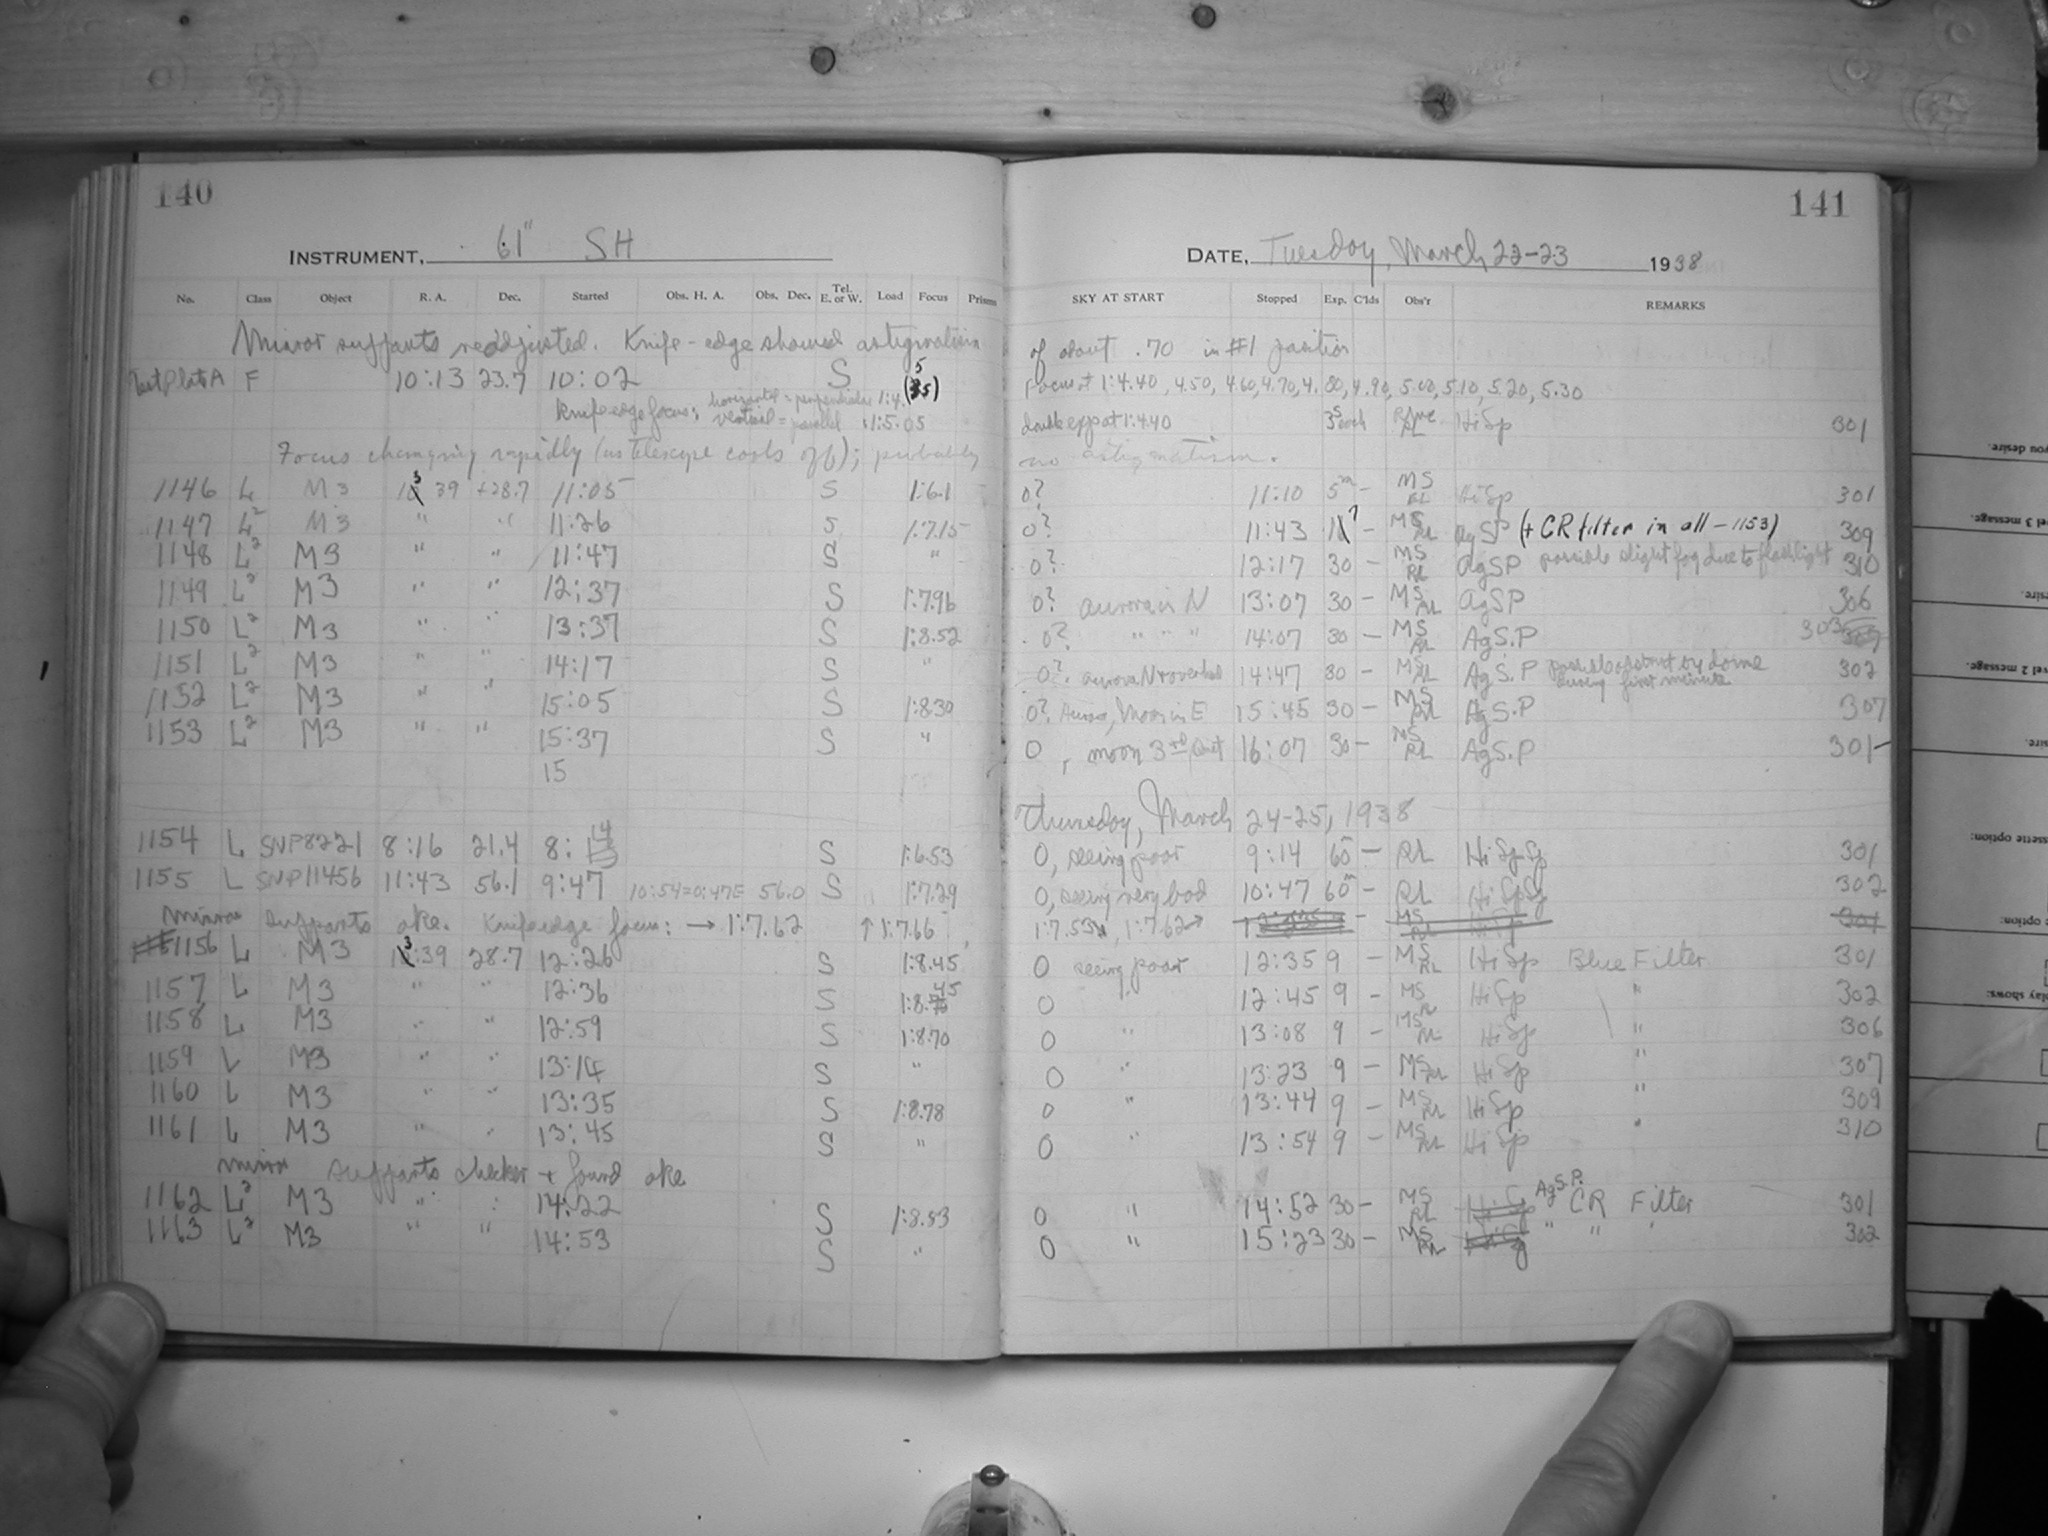 140
141
INSTRUMENT, 61" SH
DATE, Tuesday, March 22-23 1938
No. Class Object R. A. Dec. Started Obs. H. A. Obs. Dec. Tel. E. or W. Load Focus Prisms SKY AT START Stopped Exp. C'lds Obs'r REMARKS
Mirror supports readjusted. Knife-edge showed astigmatism of about .70 in #1 position
Test Plate A F 10:13 23.7 10:02 S Focus at 1:4.40, 4.50, 4.60, 4.70, 4.80, 4.90, 5.00, 5.10, 5.20, 5.30
Knife edge focus: horizontal = perpendicular 1:4.
vertical = parallel :1:5.05 double exp at 1:4.40 3s each HiSp 301
Focus changing rapidly (as telescope cools off); probably no astigmatism.
1146 L M3 13 39 +28.7 11:05 S 1:6.1 0? 11:10 5m - MS RL HiSp 301
1147 L2 M3 " " 11:26 S 1:7.15 0? 11:43 - MS RL AgSP (+ CR filter in all - 1153) 309
1148 L2 M3 " " 11:47 S " 0? 12:17 30 - MS RL AgSP possible slight fog due to flashlight 310
1149 L2 M3 " " 12:37 S 1:7.96 0? aurora in N 13:07 30 - MS RL AgSP 306
1150 L2 M3 " " 13:37 S 1:8.52 0? " " " 14:07 30 - MS RL AgS.P 303
1151 L2 M3 " " 14:17 S " 0? aurora N + overhead 14:47 30 - MS RL AgS.P possible obstruct by dome during first minute 302
1152 L2 M3 " " 15:05 S 1:8.30 0? Aurora, Moon in E 15:45 30 - MS RL AgS.P 307
1153 L2 M3 " " 15:37 S " 0, moon 3rd Quart 16:07 30 - MS RL AgS.P 301
15
Thursday, March 24-25, 1938
1154 L SVP8221 8:16 21.4 8:14 S 1:6.53 0, seeing poor 9:14 60m - RL HiSpSp 301
1155 L SVP11456 11:43 56.1 9:47 10:54=0:47E 56.0 S 1:7.29 0, seeing very bad 10:47 60m - RL HiSpSp 302
Mirror supports oke. Knife edge focus: → 1:7.62 ↑ 1:7.66, 1:7.53, 1:7.62→
1156 L M3 13:39 28.7 12:26 S 1:8.45 0 seeing poor 12:35 9 - MS RL HiSp Blue Filter 301
1157 L M3 " " 12:36 S 1:8.45 0 " 12:45 9 - MS RL HiSp " 302
1158 L M3 " " 12:59 S 1:8.70 0 " 13:08 9 - MS RL HiSp " 306
1159 L M3 " " 13:14 S " 0 " 13:23 9 - MS RL HiSp " 307
1160 L M3 " " 13:35 S 1:8.78 0 " 13:44 9 - MS RL HiSp " 309
1161 L M3 " " 13:45 S " 0 " 13:54 9 - MS RL HiSp " 310
Mirror supports checked + found oke
1162 L2 M3 " " 14:22 S 1:8.53 0 " 14:52 30 - MS RL AgS.P. CR Filter 301
1163 L2 M3 " " 14:53 S " 0 " 15:23 30 - MS RL " " " 302
you desire.
vel 3 message.
vel 2 message.
ssette option:
play shows: